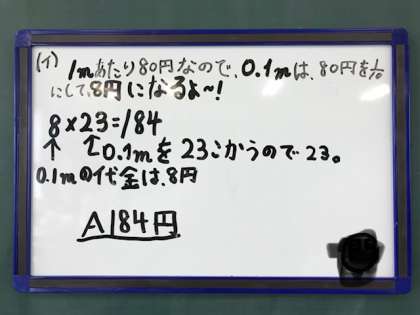 (イ) 1mあたり80円なので、0.1mは、80円を1/10
にして、8円になるよ〜!
8×23=184
↑ ↑0.1mを23こかうので23。
0.1mの代金は、8円
A184円